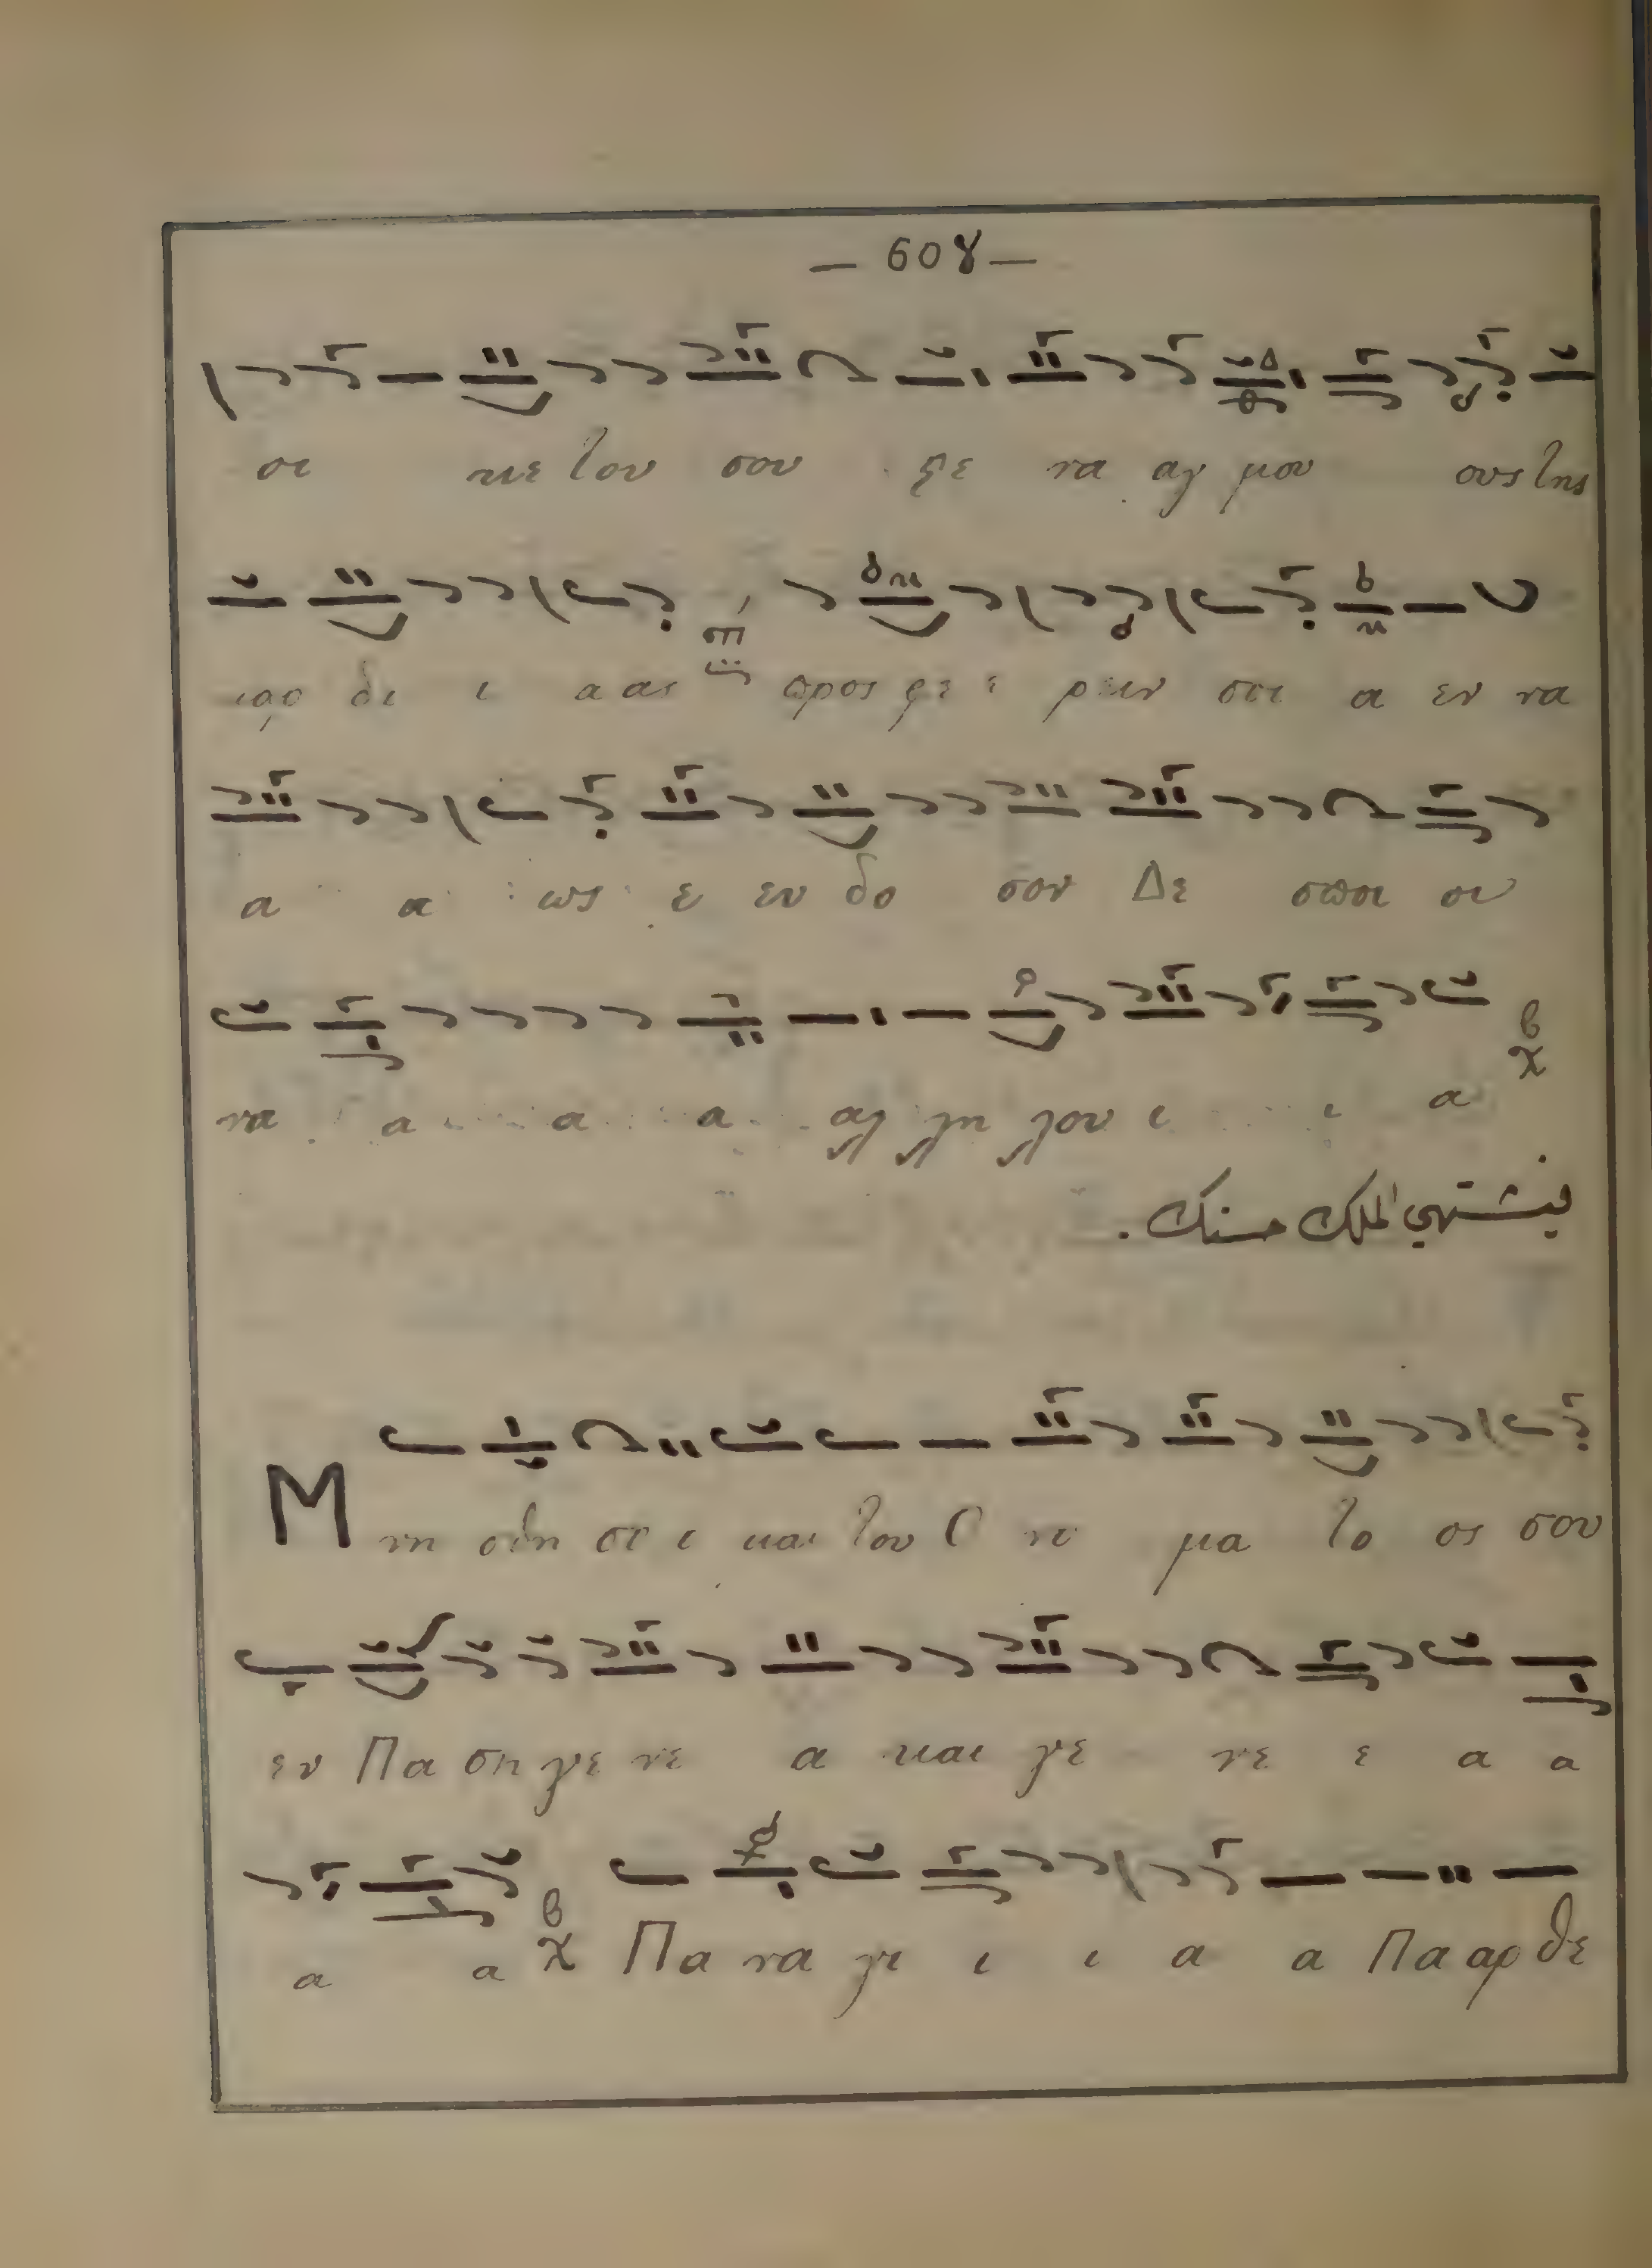 — 608 —
οι κε του σου στε να αγ μου ους της
καρ δι ι α ας προς φε ε ρειν σοι α εν να
α α ως ε ευ δο σον Δε σποι οι
να α α α αλ λη λου ι ι α
فيشتهي الملك حسنك .
Μ νη σθη σο ι και του Ο νο μα το ος σου
εν Πα ση γε νε α και γε νε ε α α
α α Πα να γι ι ι α α Πα αρ θε